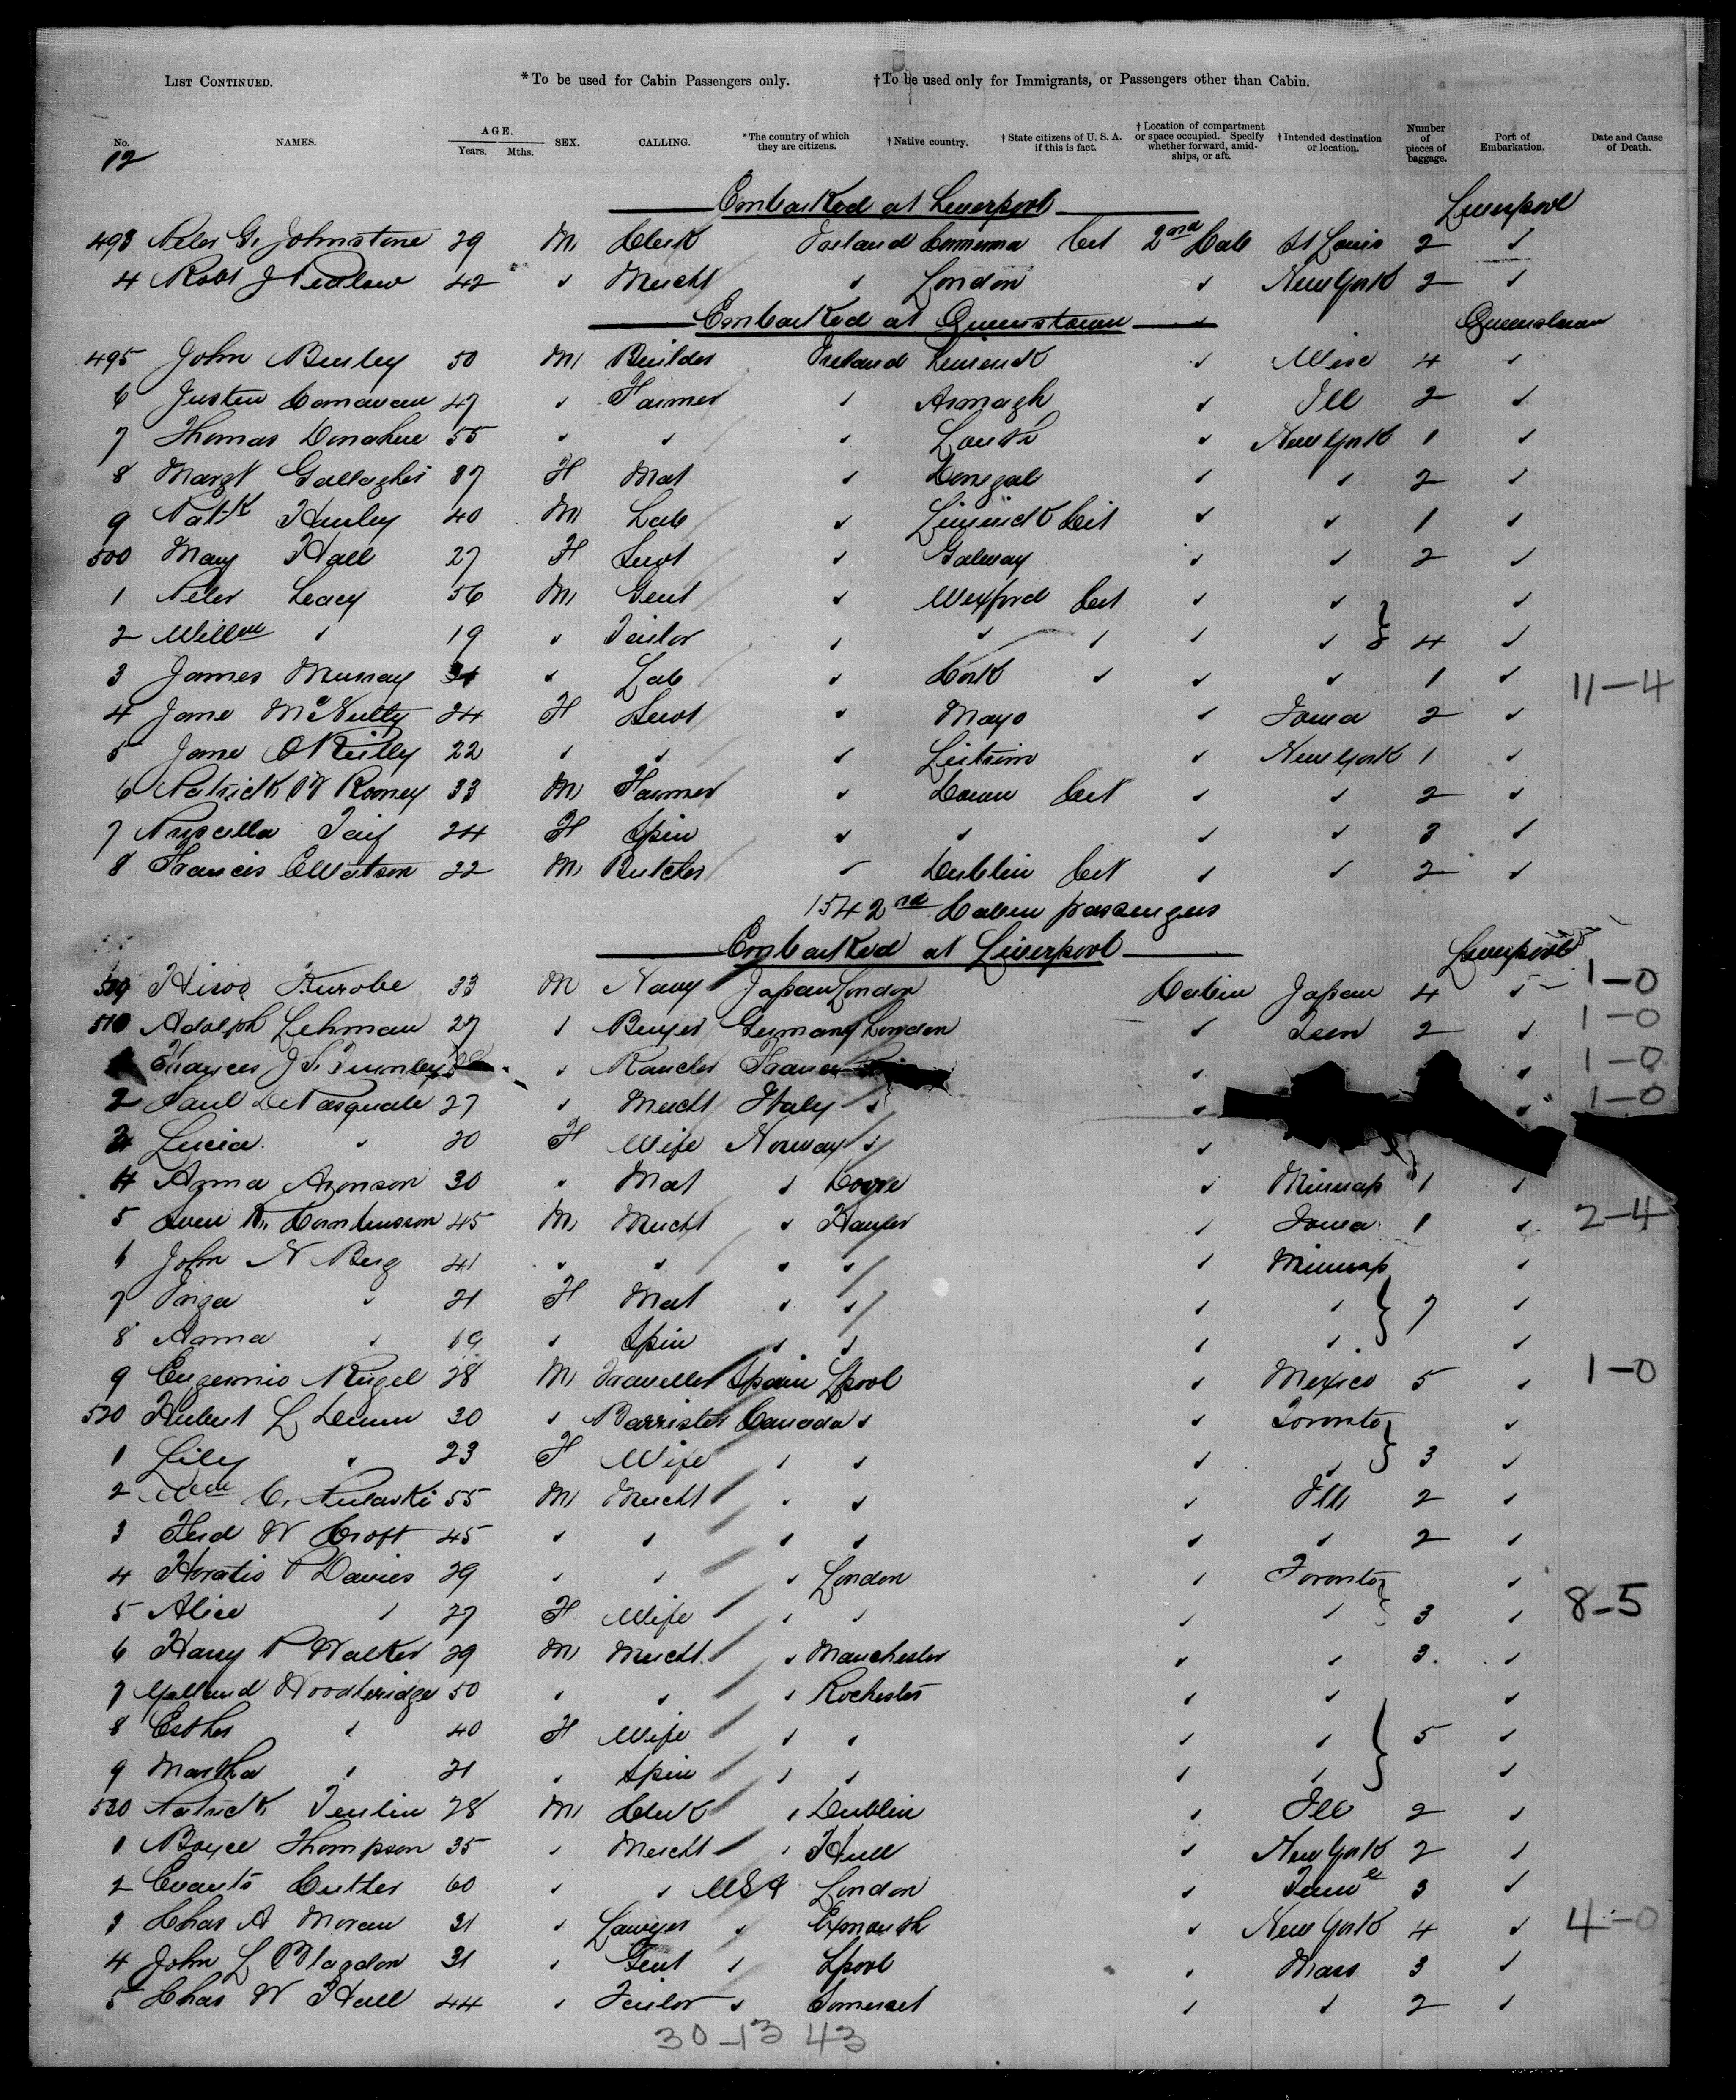 List Continued. *To be used for Cabin Passengers only. †To be used only for Immigrants, or Passengers other than Cabin.
No. NAMES. AGE. Years. Mths. SEX. CALLING. *The country of which they are citizens. †Native country. †State citizens of U. S. A. if this is fact. †Location of compartment or space occupied. Specify whether forward, amidships, or aft. †Intended destination or location. Number of pieces of baggage. Port of Embarkation. Date and Cause of Death.
12
Embarked at Liverpool Liverpool
493 Peter G. Johnstone 29 M Clerk Ireland Cit 2nd Cab St Louis 2 ✓
4 Robt J Pedlow 42 ✓ Mercht ✓ London ✓ New York 2 ✓
Embarked at Queenstown ✓ Queenstown
495 John 50 M Builder Ireland Limerick ✓ 4 ✓
6 Justin 47 ✓ Farmer ✓ Armagh ✓ Ill 2 ✓
7 Thomas Donahue 55 ✓ ✓ ✓ Louth ✓ New York 1 ✓
8 Margt Gallagher 37 F Mat ✓ Donegal ✓ ✓ 2 ✓
9 Patk Hurley 40 M Lab ✓ Limerick Cit ✓ ✓ 1 ✓
500 Mary Hall 27 F Servt ✓ Galway ✓ ✓ 2 ✓
1 Peter Leacy 56 M Gent ✓ Wexford Cit ✓ ✓ ✓
2 Willm ✓ 19 ✓ ✓ ✓ ✓ ✓ ✓ } 4 ✓
3 James Murray ✓ Lab ✓ Cork ✓ ✓ ✓ 1 ✓ 11-4
4 Jane McNulty 24 F Servt ✓ Mayo ✓ Iowa 2 ✓
5 Jane O'Reilly 22 ✓ ✓ ✓ Leitrim ✓ New York 1 ✓
6 Patrick W Rooney 33 M Farmer ✓ Down Cit ✓ ✓ 2 ✓
7 Pryscilla 24 F Spin ✓ ✓ ✓ ✓ 3 ✓
8 Francis E Watson 22 M Butcher ✓ Dublin Cit ✓ ✓ 2 ✓
154 2nd Cabin passengers
Embarked at Liverpool Liverpool
509 Hiroo Kurobe 33 M Navy Japan London Cabin Japan 4 ✓ 1-0
510 Adolph Lehman 27 ✓ Buyer Germany London ✓ 2 ✓ 1-0
Frances J S ✓ Rancher France ✓ ✓ 1-0
2 Paul De Pasquale 27 ✓ Mercht Italy ✓ ✓ ✓ 1-0
Lucia ✓ 20 F Wife Norway ✓ ✓
4 Anna Aronson 30 ✓ Mat ✓ ✓ Minnap 1 ✓
5 Sven 45 M Mercht ✓ ✓ Iowa 1 ✓ 2-4
6 John N Berg 41 ✓ ✓ ✓ ✓ ✓ Minnap ✓
7 Inga ✓ 21 F Mat ✓ ✓ ✓ ✓ } 7 ✓
8 Anna ✓ 19 ✓ Spin ✓ ✓ ✓ ✓ ✓
9 Eugennio 28 M Traveller Spain Lpool ✓ Mexico 5 ✓ 1-0
520 Hubert L 30 ✓ Barrister Canada ✓ ✓ Toronto ✓
1 Lily ✓ 23 F Wife ✓ ✓ ✓ ✓ } 3 ✓
2 Wm C. Pulaski 55 M Mercht ✓ ✓ ✓ Ill 2 ✓
3 Fred W Croft 45 ✓ ✓ ✓ ✓ ✓ ✓ 2 ✓
4 Horatio P Davies 29 ✓ ✓ ✓ London ✓ Toronto ✓
5 Alice ✓ 27 F Wife ✓ ✓ ✓ ✓ } 3 ✓ 8-5
6 Harry P Walker 29 M Mercht ✓ Manchester ✓ ✓ 3 ✓
7 Woodbridge 50 ✓ ✓ ✓ Rochester ✓ ✓ ✓
8 Esther ✓ 40 F Wife ✓ ✓ ✓ ✓ } 5 ✓
9 Martha ✓ 21 ✓ Spin ✓ ✓ ✓ ✓ ✓
530 Patrick 28 M Clerk ✓ Dublin ✓ Ill 2 ✓
1 Boyce Thompson 35 ✓ Mercht ✓ Hull ✓ New York 2 ✓
2 Evarts Cutler 60 ✓ ✓ USA London ✓ 3 ✓
3 Chas A Moran 31 ✓ Lawyer ✓ Exmouth ✓ New York 4 ✓ 4-0
4 John L Blagdon 31 ✓ Gent ✓ Lpool ✓ Mass 3 ✓
5 Chas W Hall 44 ✓ ✓ Somerset ✓ ✓ 2 ✓
30-13 43